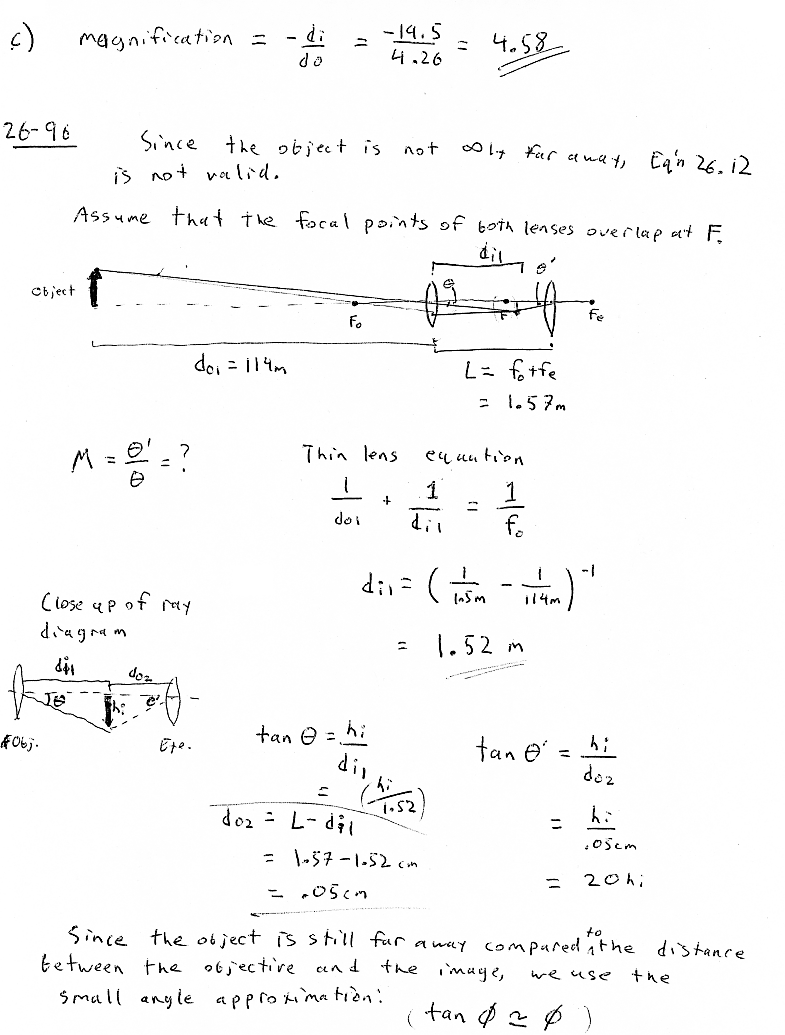 c) magnification = -di/do = -19.5/4.26 = 4.58
26-96
Since the object is not ∞ly far away, Eq'n 26.12
is not valid.
Assume that the focal points of both lenses overlap at F.
di1
θ θ'
Object
Fo F Fe
do1 = 114m
L = fo+fe
= 1.57m
M = θ'/θ = ?
Thin lens equation
1/do1 + 1/di1 = 1/fo
di1 = (1/1.5m - 1/114m)^-1
= 1.52 m
Close up of ray
diagram
di1 do2
θ hi θ'
Obj. Eye.
tan θ = hi/di1
= (hi/1.52)
do2 = L - di1
= 1.57 - 1.52 cm
= .05cm
tan θ' = hi/do2
= hi/.05cm
= 20hi
Since the object is still far away compared to the distance
between the objective and the image, we use the
small angle approximation:
(tan ϕ ≃ ϕ)